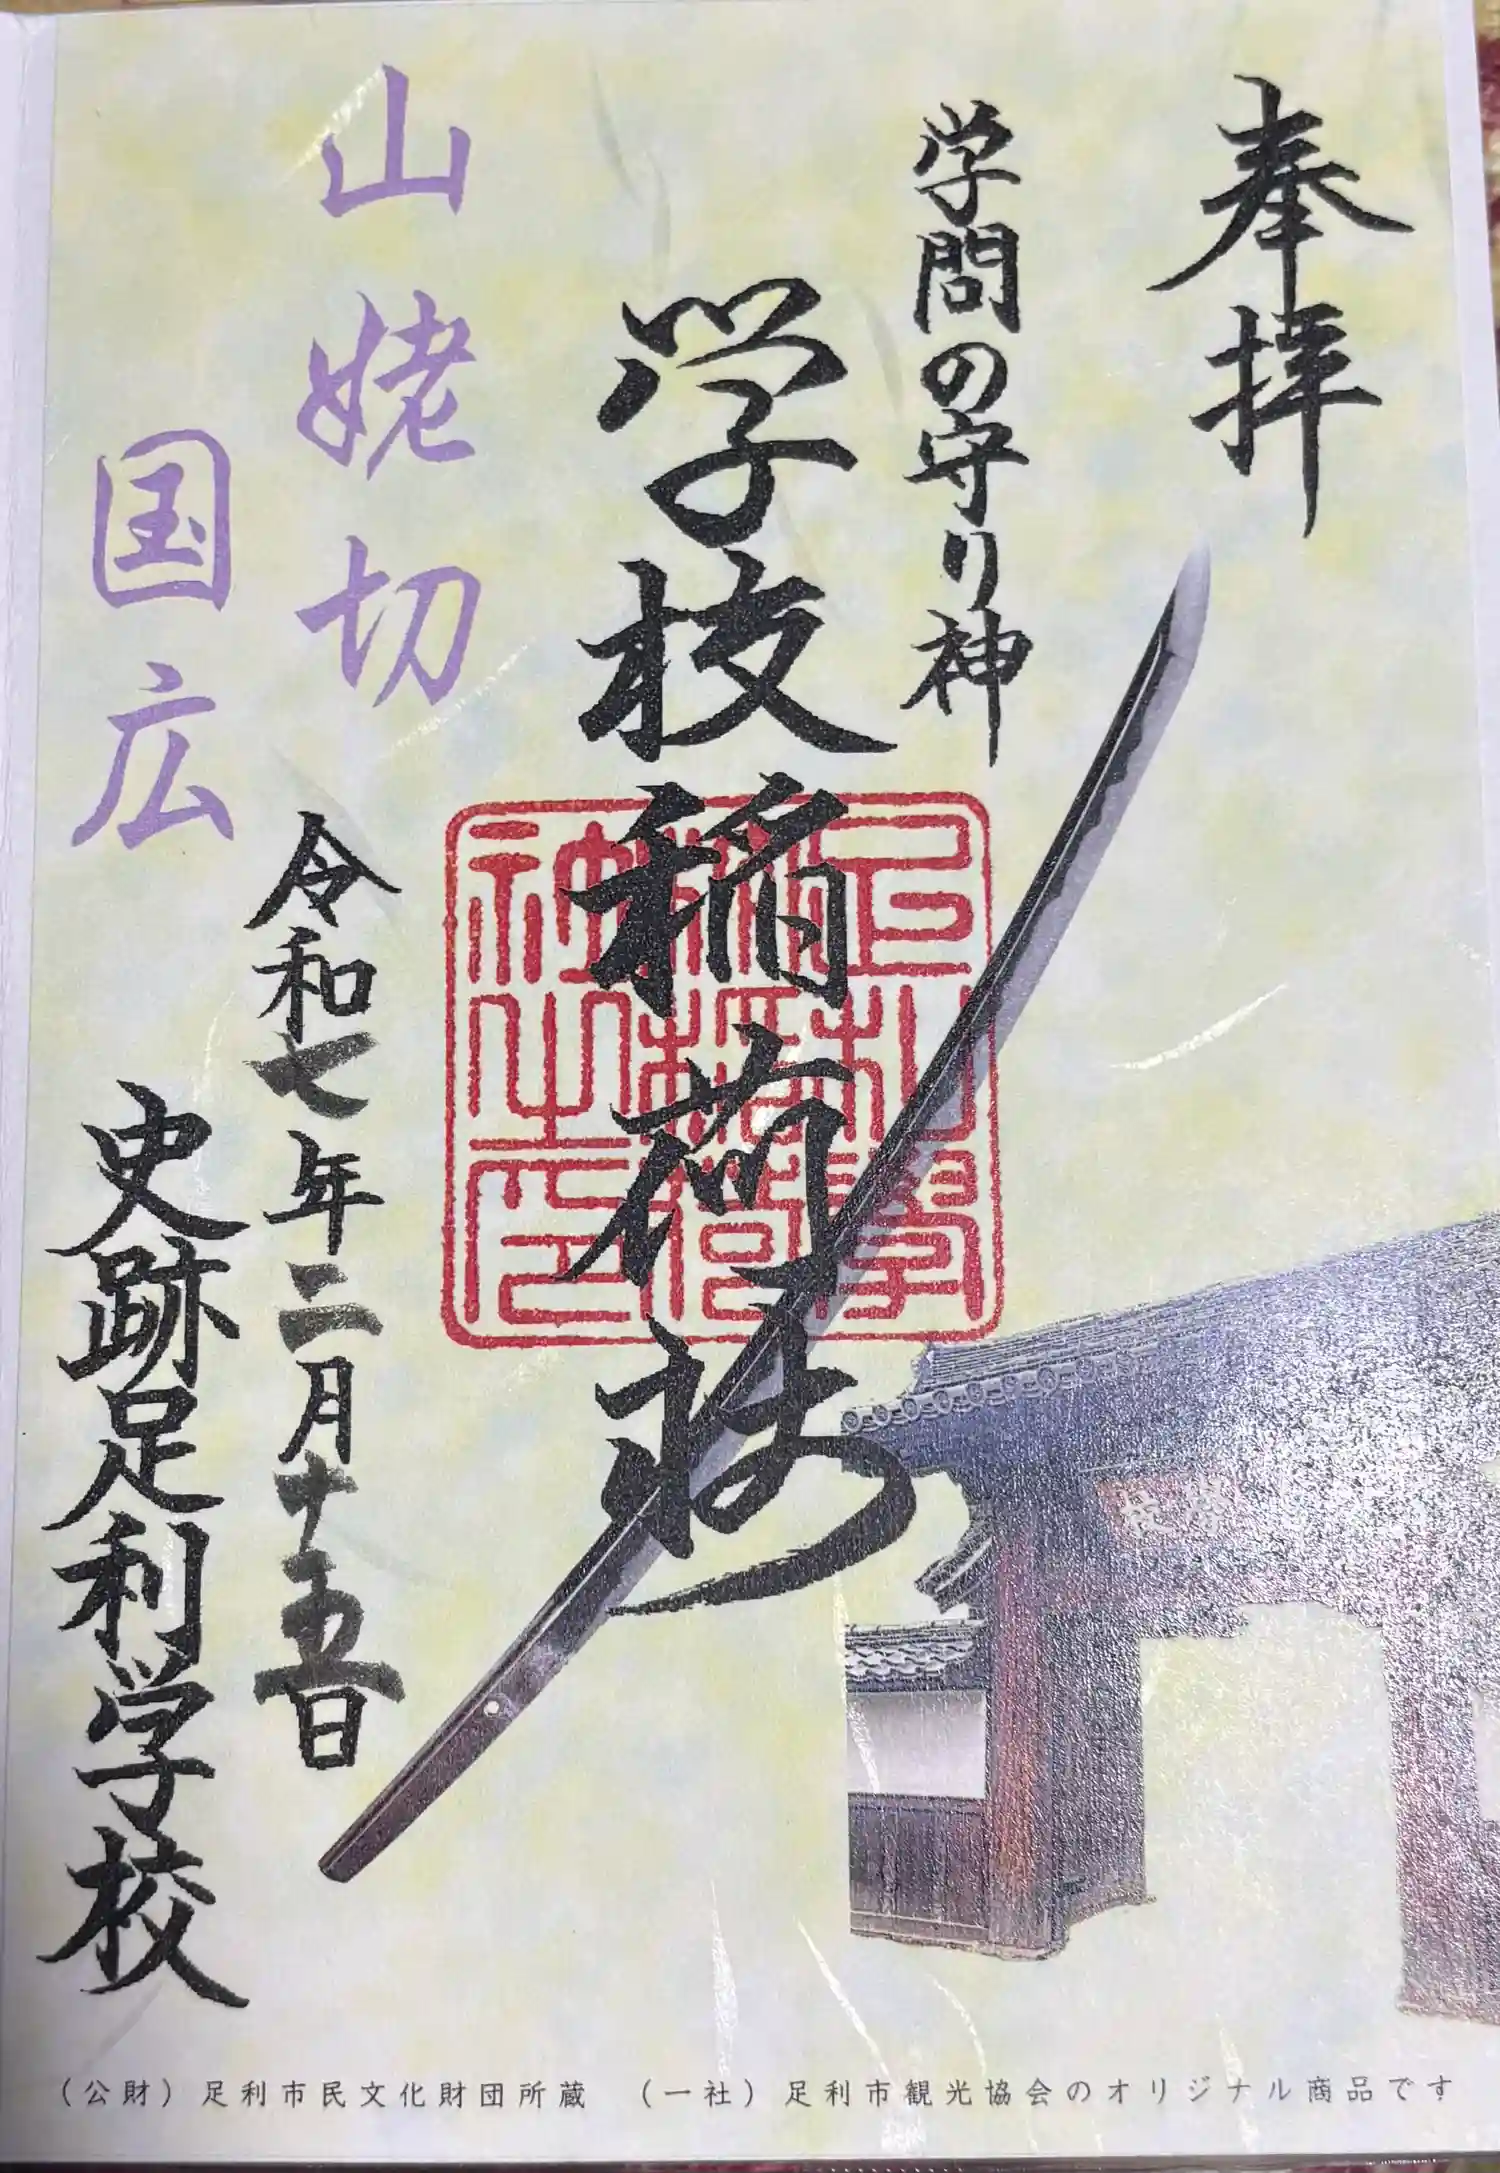 奉拝
学問の守り神
学校稲荷社
山姥切
国広
令和七年二月十五日
史跡足利学校
足利學
校稲荷
神社之印
學校
(公財)足利市民文化財団所蔵 (一社)足利市観光協会のオリジナル商品です